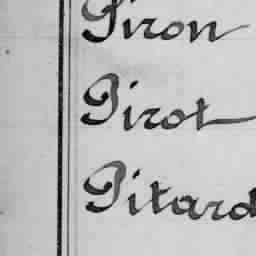 Piron
Pirot
Pitard